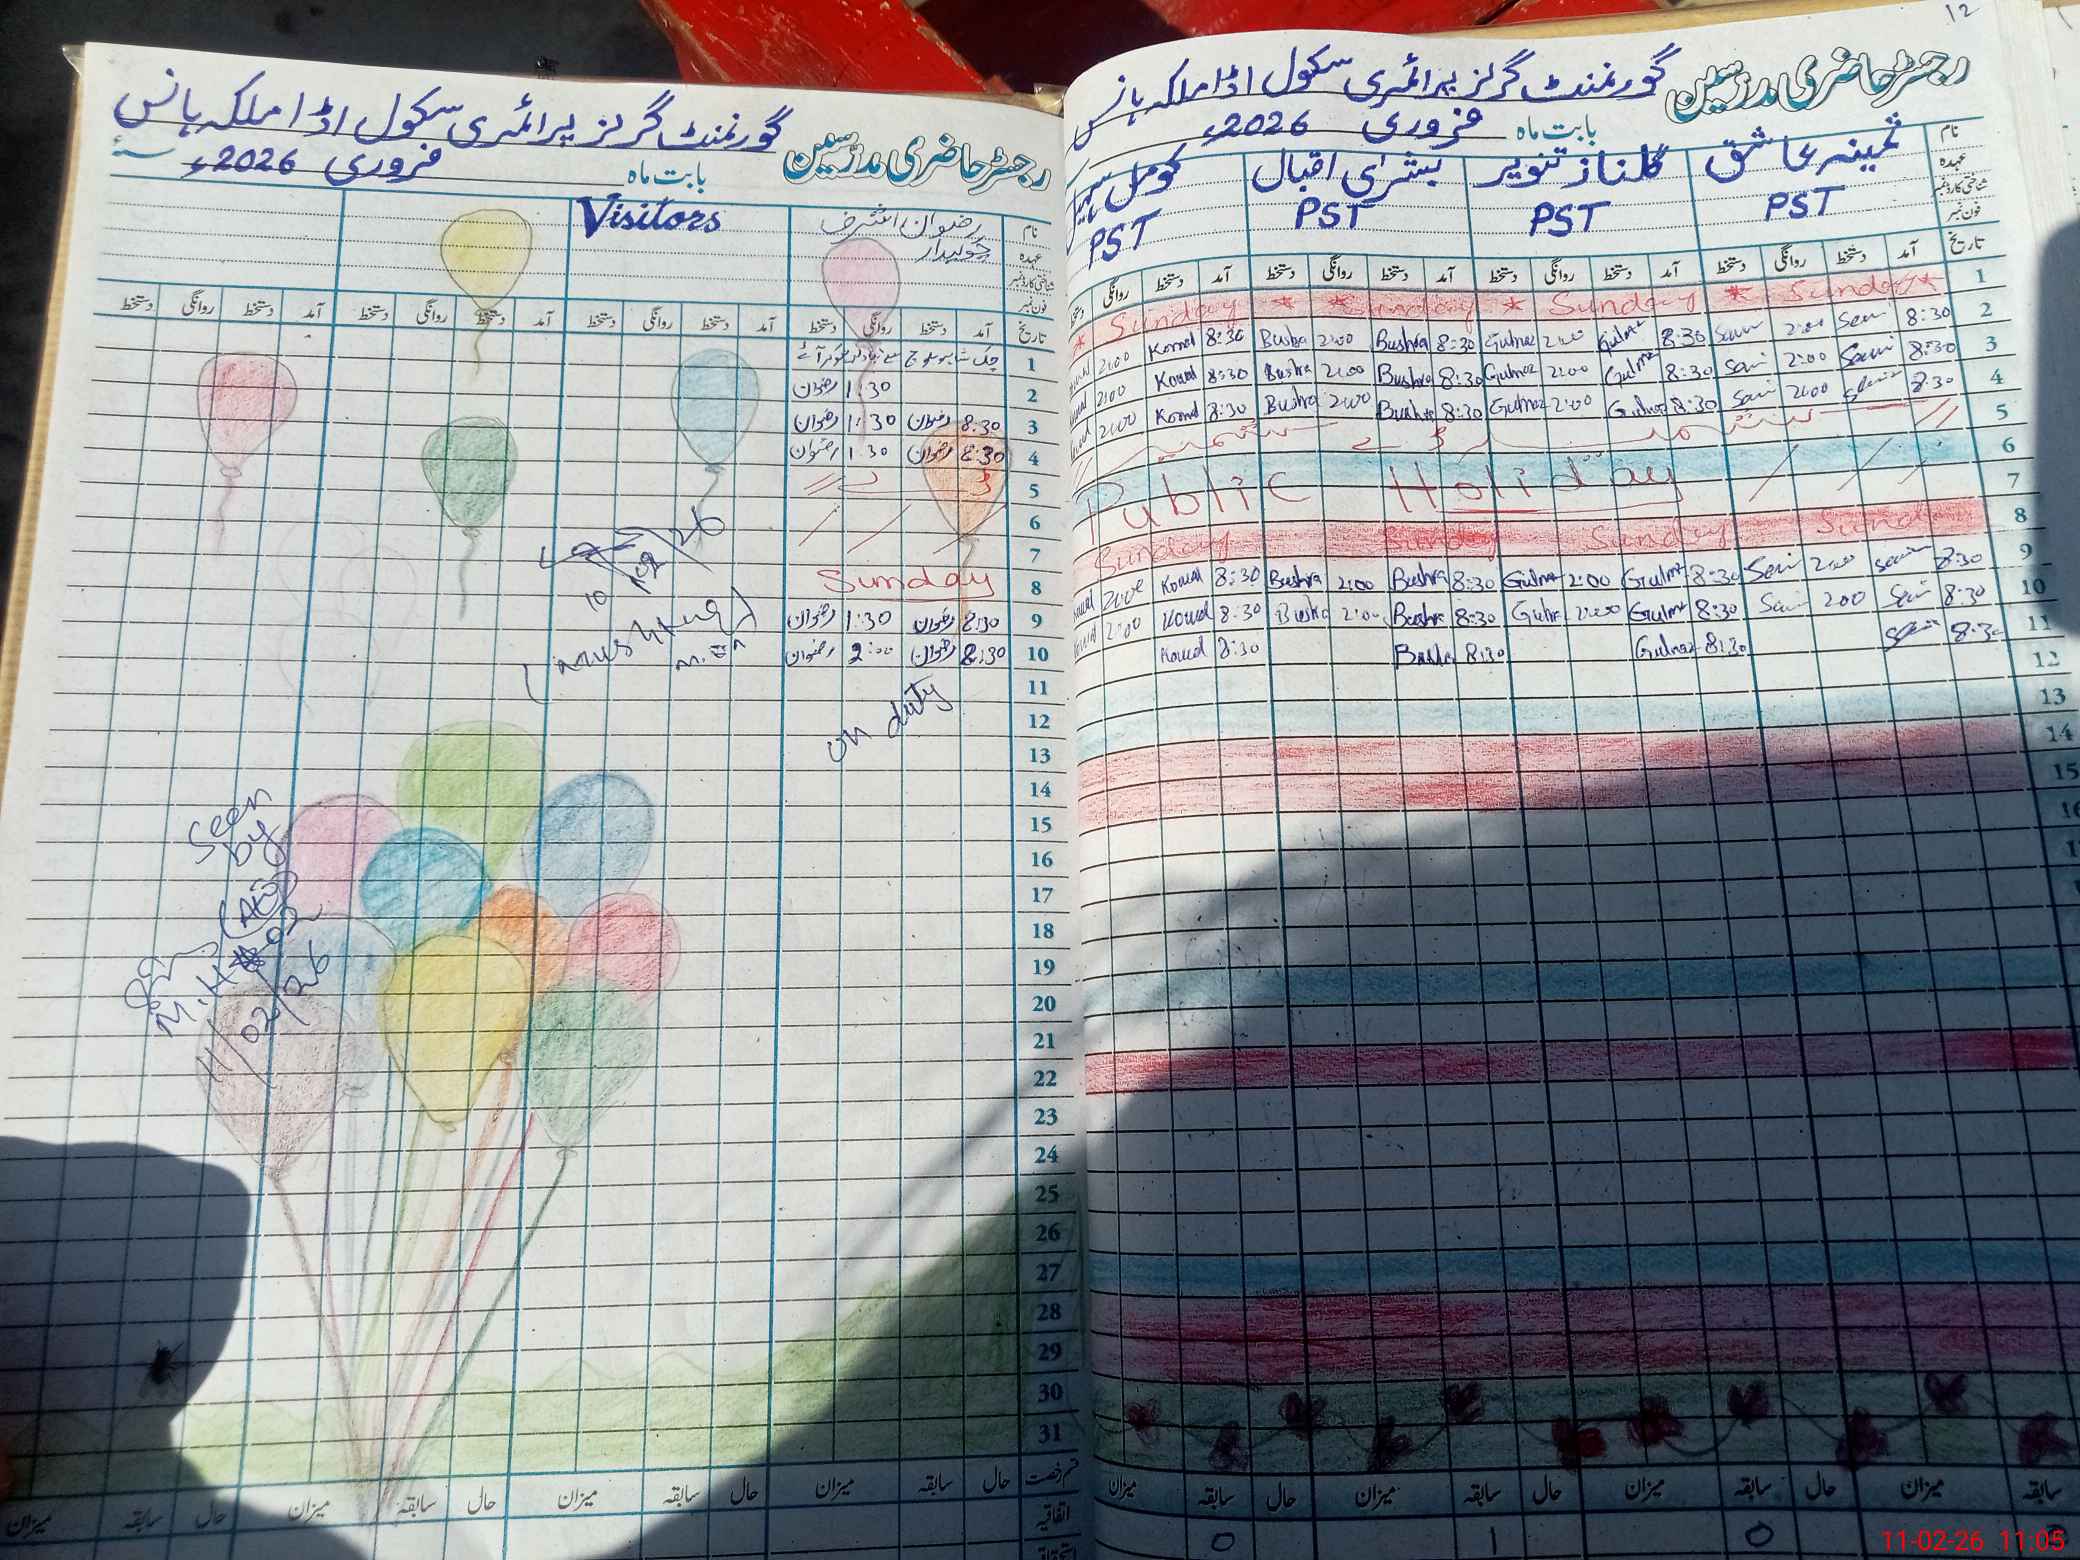 رجسٹر حاضری مدرسین گورنمنٹ گرلز پرائمری سکول اڈا ملکہ ہانس
بابت ماہ فروری 2026ء
Visitors
رضوان اشرف
چوکیدار
نام
عہدہ
شناختی کارڈ نمبر
فون نمبر
تاریخ آمد دستخط روانگی دستخط آمد دستخط روانگی دستخط آمد دستخط روانگی دستخط آمد دستخط روانگی دستخط
1
2 1:30 رضوان
3 8:30 رضوان 1:30 رضوان
4 8:30 رضوان 1:30 رضوان
5
6
7
8 Sunday
9 8:30 رضوان 1:30 رضوان
10 8:30 رضوان 2:00 رضوان
11
12
on duty
13
14
15
16
17
18
19
20
21
22
23
24
25
26
27
28
29
30
31
10/02/26
Seen
by
(AEO)
11/02/26
قسم رخصت حال سابقہ میزان حال سابقہ میزان حال سابقہ میزان حال سابقہ میزان
اتفاقیہ
12
رجسٹر حاضری مدرسین گورنمنٹ گرلز پرائمری سکول اڈا ملکہ ہانس
بابت ماہ فروری 2026ء
نام ثمینہ عاشق گلناز تنویر بشریٰ اقبال کومل
عہدہ PST PST PST PST
شناختی کارڈ نمبر
فون نمبر
تاریخ آمد دستخط روانگی دستخط آمد دستخط روانگی دستخط آمد دستخط روانگی دستخط آمد دستخط روانگی دستخط
1 * Sunday * * Sunday * Sunday * Sunday *
2 8:30 2:00 8:30 Gulnaz 2:00 Gulnaz 8:30 Bushra 2:00 Bushra 8:30 Komal 2:00
3 8:30 2:00 8:30 Gulnaz 2:00 Gulnaz 8:30 Bushra 2:00 Bushra 8:30 Komal 2:00
4 8:30 2:00 8:30 Gulnaz 2:00 Gulnaz 8:30 Bushra 2:00 Bushra 8:30 Komal 2:00
5
6
7 Public Holiday
8 Sunday Sunday Sunday Sunday
9 8:30 2:00 8:30 Gulnaz 2:00 Gulnaz 8:30 Bushra 2:00 Bushra 8:30 Komal 2:00
10 8:30 2:00 8:30 Gulnaz 2:00 Gulnaz 8:30 Bushra 2:00 Bushra 8:30 Komal 2:00
11 8:30 8:30 Gulnaz 8:30 Bushra 8:30 Komal
12
13
14
15
16
سابقہ میزان حال سابقہ میزان حال سابقہ میزان حال سابقہ میزان
0 1 0
11-02-26 11:05